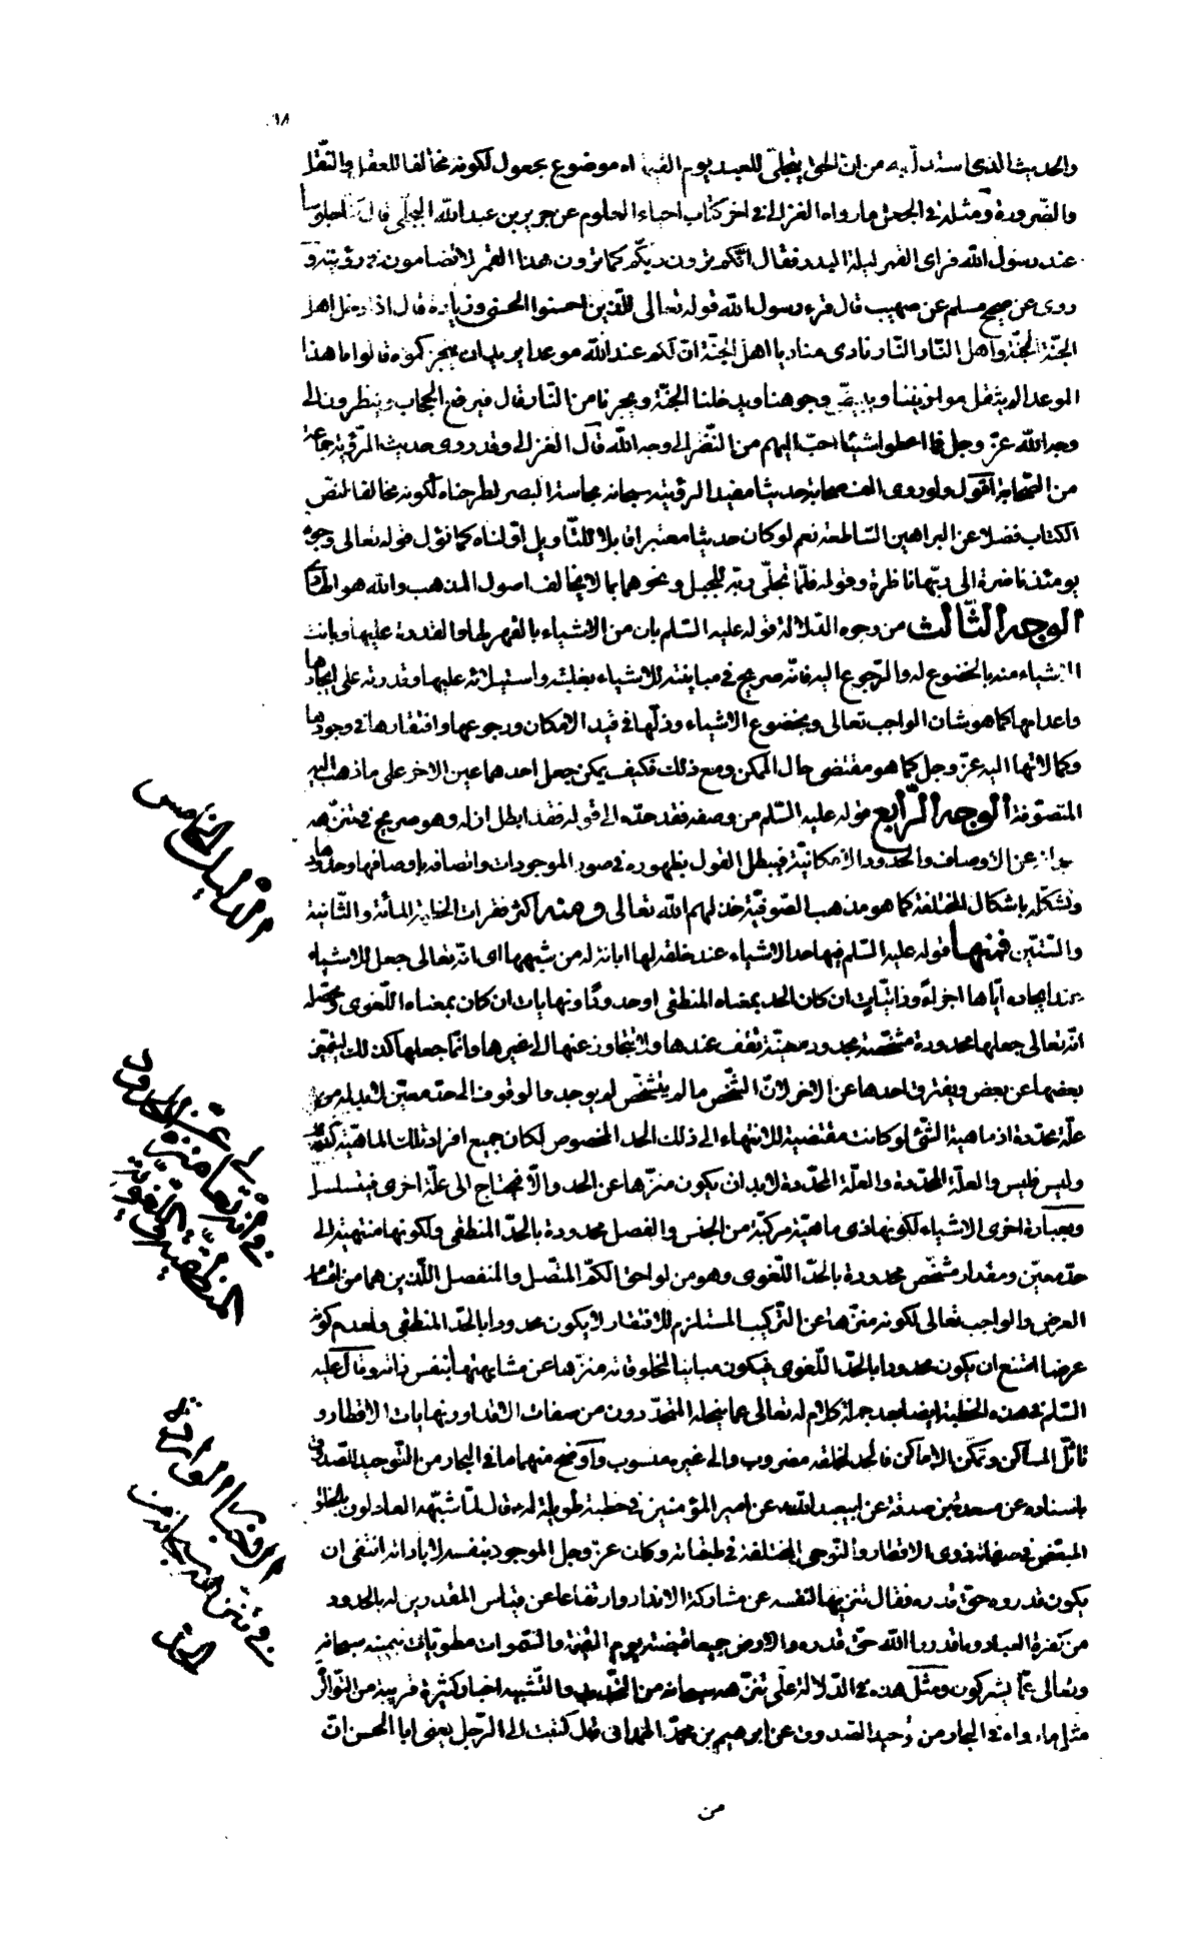 ٩٨
والحديث الذى استدلّ به من ان الحق يتجلّى للعبد يوم القيمة اه موضوع مجعول لكونه مخالفا للعقل والنّقل
والضّرورة ومثله فى الجعل ما رواه الغزالى فى اخر كتاب احياء العلوم عن جرير بن عبد الله البجلّى قال كنّا جلوسا
عند رسول الله فراى القمر ليلة البدر فقال انّكم ترون ربّكم كما ترون هذا القمر لا تضامون فى رؤيته و
روى عن صحيح مسلم عن صهيب قال قرء رسول الله قوله تعالى للّذين احسنوا الحسنى وزيادة قال اذا دخل اهل
الجنّة الجنّة واهل النّار النّار نادى مناد يا اهل الجنّة انّ لكم عند الله موعدا يريد ان ينجزكموه قالوا ما هذا
الموعد الم يثقل موازيننا ويبيّض وجوهنا ويدخلنا الجنّة ويجرنا من النّار قال فيرفع الحجاب وينظرون الى
وجه الله عزّ وجل فما اعطوا شيئا احبّ اليهم من النّظر الى وجه الله قال الغزالى وقد روى حديث الرّؤية جماعة
من الصّحابة اقول ولو روى الف صحابة حديثا مفيدا لرؤيته سبحانه بحاسة البصر لطرحناه لكونه مخالفا لنصّ
الكتاب فضلا عن البراهين السّاطعة نعم لو كان حديثا معتبرا قابلا للتّاويل اوّلناه كما نؤل قوله تعالى وجوه
يومئذ ناضرة الى ربّها ناظرة وقوله فلمّا تجلّى ربّه للجبل ونحوهما بما لا يخالف اصول المذهب والله هو الهادى
الوجه الثّالث من وجوه الدّلالة قوله عليه السّلم بان من الاشياء بالقهر لها والقدرة عليها وبانت
الاشياء منه بالخضوع له والرّجوع اليه فانّه صريح فى مباينته للاشياء بغلبته واستيلائه عليها وقدرته على ايجادها
واعدامها كما هو شان الواجب تعالى وبخضوع الاشياء وذلّها فى قيد الامكان ورجوعها وافتقارها فى وجودها
وكمالاتها اليه عزّ وجل كما هو مقتضى حال الممكن ومع ذلك فكيف يمكن جعل احدهما عين الاخر على ما ذهب اليه
المتصوّفة الوجه الرّابع قوله عليه السّلم من وصفه فقد حدّه الى قوله فقد ابطل ازله وهو صريح فى تنزّهه
سبحانه عن الاوصاف والحدود الامكانيّة فيبطل القول بظهوره فى صور الموجودات واتصافه باوصافها وحدودها
وتشكّله باشكال المختلفة كما هو مذهب الصّوفيّة خذلهم الله تعالى ومنه اكثر فقرات الخطبة المأتة والثّانية
والسّتّين فمنها قوله عليه السّلم فيها حد الاشياء عند خلقه لها ابانة له من شبهها اى انّه تعالى جعل للاشياء
عند ايجاده ايّاها اجزاء وذاتيّات ان كان الحد بمعناه المنطقى او حدودا ونهايات ان كان بمعناه اللّغوى ومحصّله
انّه تعالى جعلها محدودة مشخّصة بحدود معيّنة تقف عندها ولا تتجاوز عنها الى غيرها وانّما جعلها كذلك ليتميّز
بعضها عن بعض ويفترق احدها عن الاخر لانّ الشّخص ما لم يتشخّص لم يوجد والوقوف الى حدّ معيّن لابدّ له من
علّة محدّدة اذ ماهية الشّئ لو كانت مقتضية للانتهاء الى ذلك الحد المخصوص لكان جميع افراد تلك الماهيّة كذلك
وليس فليس والعلّة المحدّدة والعلّة المحدّدة لابد ان يكون منزّها عن الحد والّا لاحتاج الى علّة اخرى فيتسلسل
وبعبارة اخرى الاشياء لكونها ذى ماهيّة مركبّة من الجنس والفصل محدودة بالحدّ المنطقى ولكونها منتهية الى
حدّ معيّن ومقدار مشخّص محدودة بالحدّ اللّغوى وهو من لواحق الكمّ المتّصل والمنفصل اللّذين هما من اقسام
العرض والواجب تعالى لكونه منزّها عن التّركيب المستلزم للافتقار لا يكون محدودا بالحدّ المنطقى ولعدم كونه
عرضا امتنع ان يكون محدودا بالحدّ اللّغوى فيكون مباينا لمخلوقاته منزّها عن مشابهتها بنفس ذاته وقال عليه
السّلم فى هذه الخطبة ايضا بعد جملة كلام له تعالى عما ينحله المحدّدون من صفات الاقدار ونهايات الاقطار و
تاثّل المساكن وتمكّن الاماكن فالحد لخلقه مضروب والى غيره منسوب واوضح منهما ما فى البحار من التّوحيد للصدوق
باسناده عن مسعدة بن صدقة عن ابيعبد الله عن امير المؤمنين فى خطبة طويلة له قال لمّا شبّهه العادلون بالخلق
المبعّض فى صفاته ذوى الاقطار والنّواحى المختلفة فى طبقاته وكان عزّ وجل الموجود بنفسه لا باداته انتفى ان
يكون قدروه حقّ قدره فقال تنزيها لنفسه عن مشاركة الانداد وارتفاعا عن قياس المقدرين له بالحدود
من كفرة العباد وما قدروا الله حقّ قدره والارض جميعا قبضته يوم القيمة والسّموات مطويّات بيمينه سبحانه
وتعالى عمّا يشركون ومثل هذه فى الدّلالة على تنزّهه سبحانه من التّحديد والتّشبيه اخبار كثيرة قريبة من التّواتر
مثل ما رواه فى البحار من توحيد الصّدوق عن ابرهيم بن محمّد الهمدانى قال كتبت الى الرّجل يعنى ابا الحسن انّ
من
الدّليل الخامس
فى انّه تعالى منزّه عن الحدود
المنطقيّة واللّغويّة
الاخبار الواردة
فى تنزّه الله سبحانه من
الحد